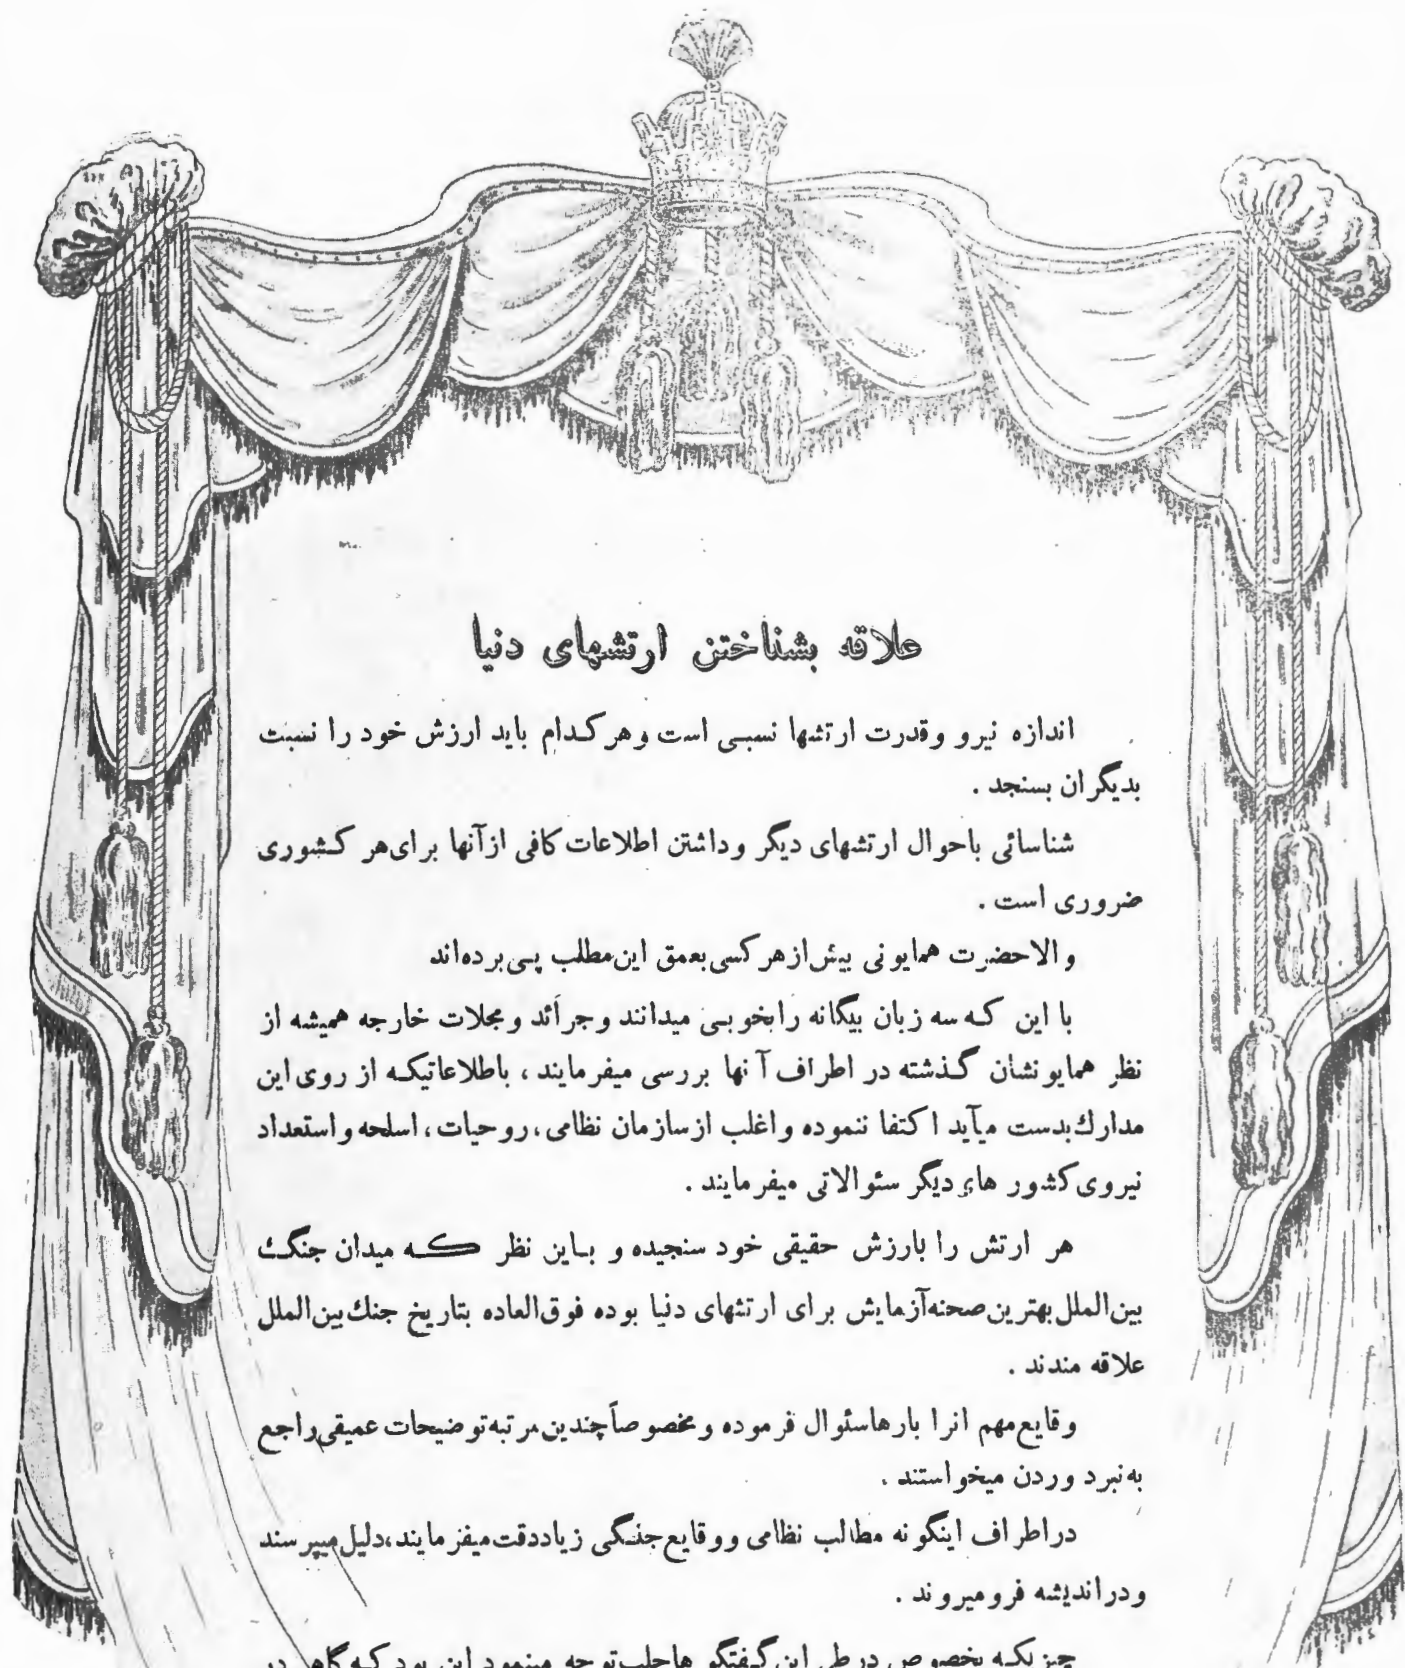 علاقه بشناختن ارتشهای دنیا
اندازه نیرو وقدرت ارتشها نسبی است وهرکدام باید ارزش خود را نسبت
بدیگران بسنجد .
شناسائی باحوال ارتشهای دیگر وداشتن اطلاعات کافی ازآنها برای هر کشوری
ضروری است .
والاحضرت همایونی بیش از هر کسی بعمق این مطلب پی برده اند
با این که سه زبان بیگانه را بخوبی میدانند وجرائد ومجلات خارجه همیشه از
نظر همایونشان گذشته در اطراف آنها بررسی میفرمایند ، باطلاعاتیکه از روی این
مدارک بدست میآید اکتفا ننموده واغلب ازسازمان نظامی، روحیات، اسلحه واستعداد
نیروی کشور های دیگر سئوالاتی میفرمایند .
هر ارتش را بارزش حقیقی خود سنجیده و باین نظر که میدان جنگ
بین الملل بهترین صحنه آزمایش برای ارتشهای دنیا بوده فوق العاده بتاریخ جنك بین الملل
علاقه مندند .
وقایع مهم انرا بارها سئوال فرموده ومخصوصاً چندین مرتبه توضیحات عمیقی راجع
به نبرد وردن میخواستند .
دراطراف اینگونه مطالب نظامی ووقایع جنگی زیاددقت میفرمایند، دلیل میپرسند
ودراندیشه فرومیروند .
چیزیکه بخصوص درطی این گفتگو هاجلب توجه مینمود این بود که گاهی در